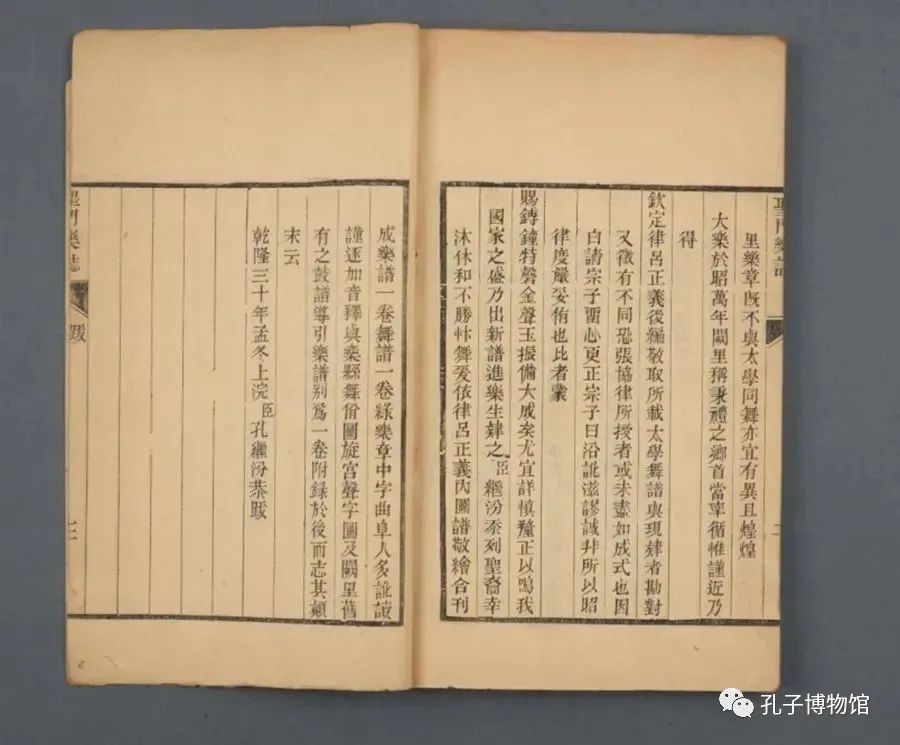 聖門樂誌
里樂章既不與太學同舞亦宜有異且煌煌
大樂於昭萬年闕里稱秉禮之鄉首當率循惟謹近乃
得
欽定律呂正義後編敬取所載太學舞譜與現肄者勘對
又微有不同恐張協律所授者或未盡如成式也因
白請宗子留心更正宗子曰沿訛滋謬誠非所以昭
律度嚴妥侑也比者蒙
賜鎛鐘特磬金聲玉振備大成矣尤宜詳慎釐正以鳴我
國家之盛乃出新譜進樂生肄之臣繼汾忝列聖裔幸
沐休和不勝忭舞爰依律呂正義內圖譜敬繪合刊
成樂譜一卷舞譜一卷緣樂章中字曲阜人多訛讀
謹逐加音釋與樂縣舞佾圖旋宮聲字圖及闕里舊
有之鼓譜導引樂譜別為一卷附錄於後而志其顛
末云
乾隆三十年孟冬上浣臣孔繼汾恭跋
聖門樂誌
跋
三
孔子博物馆